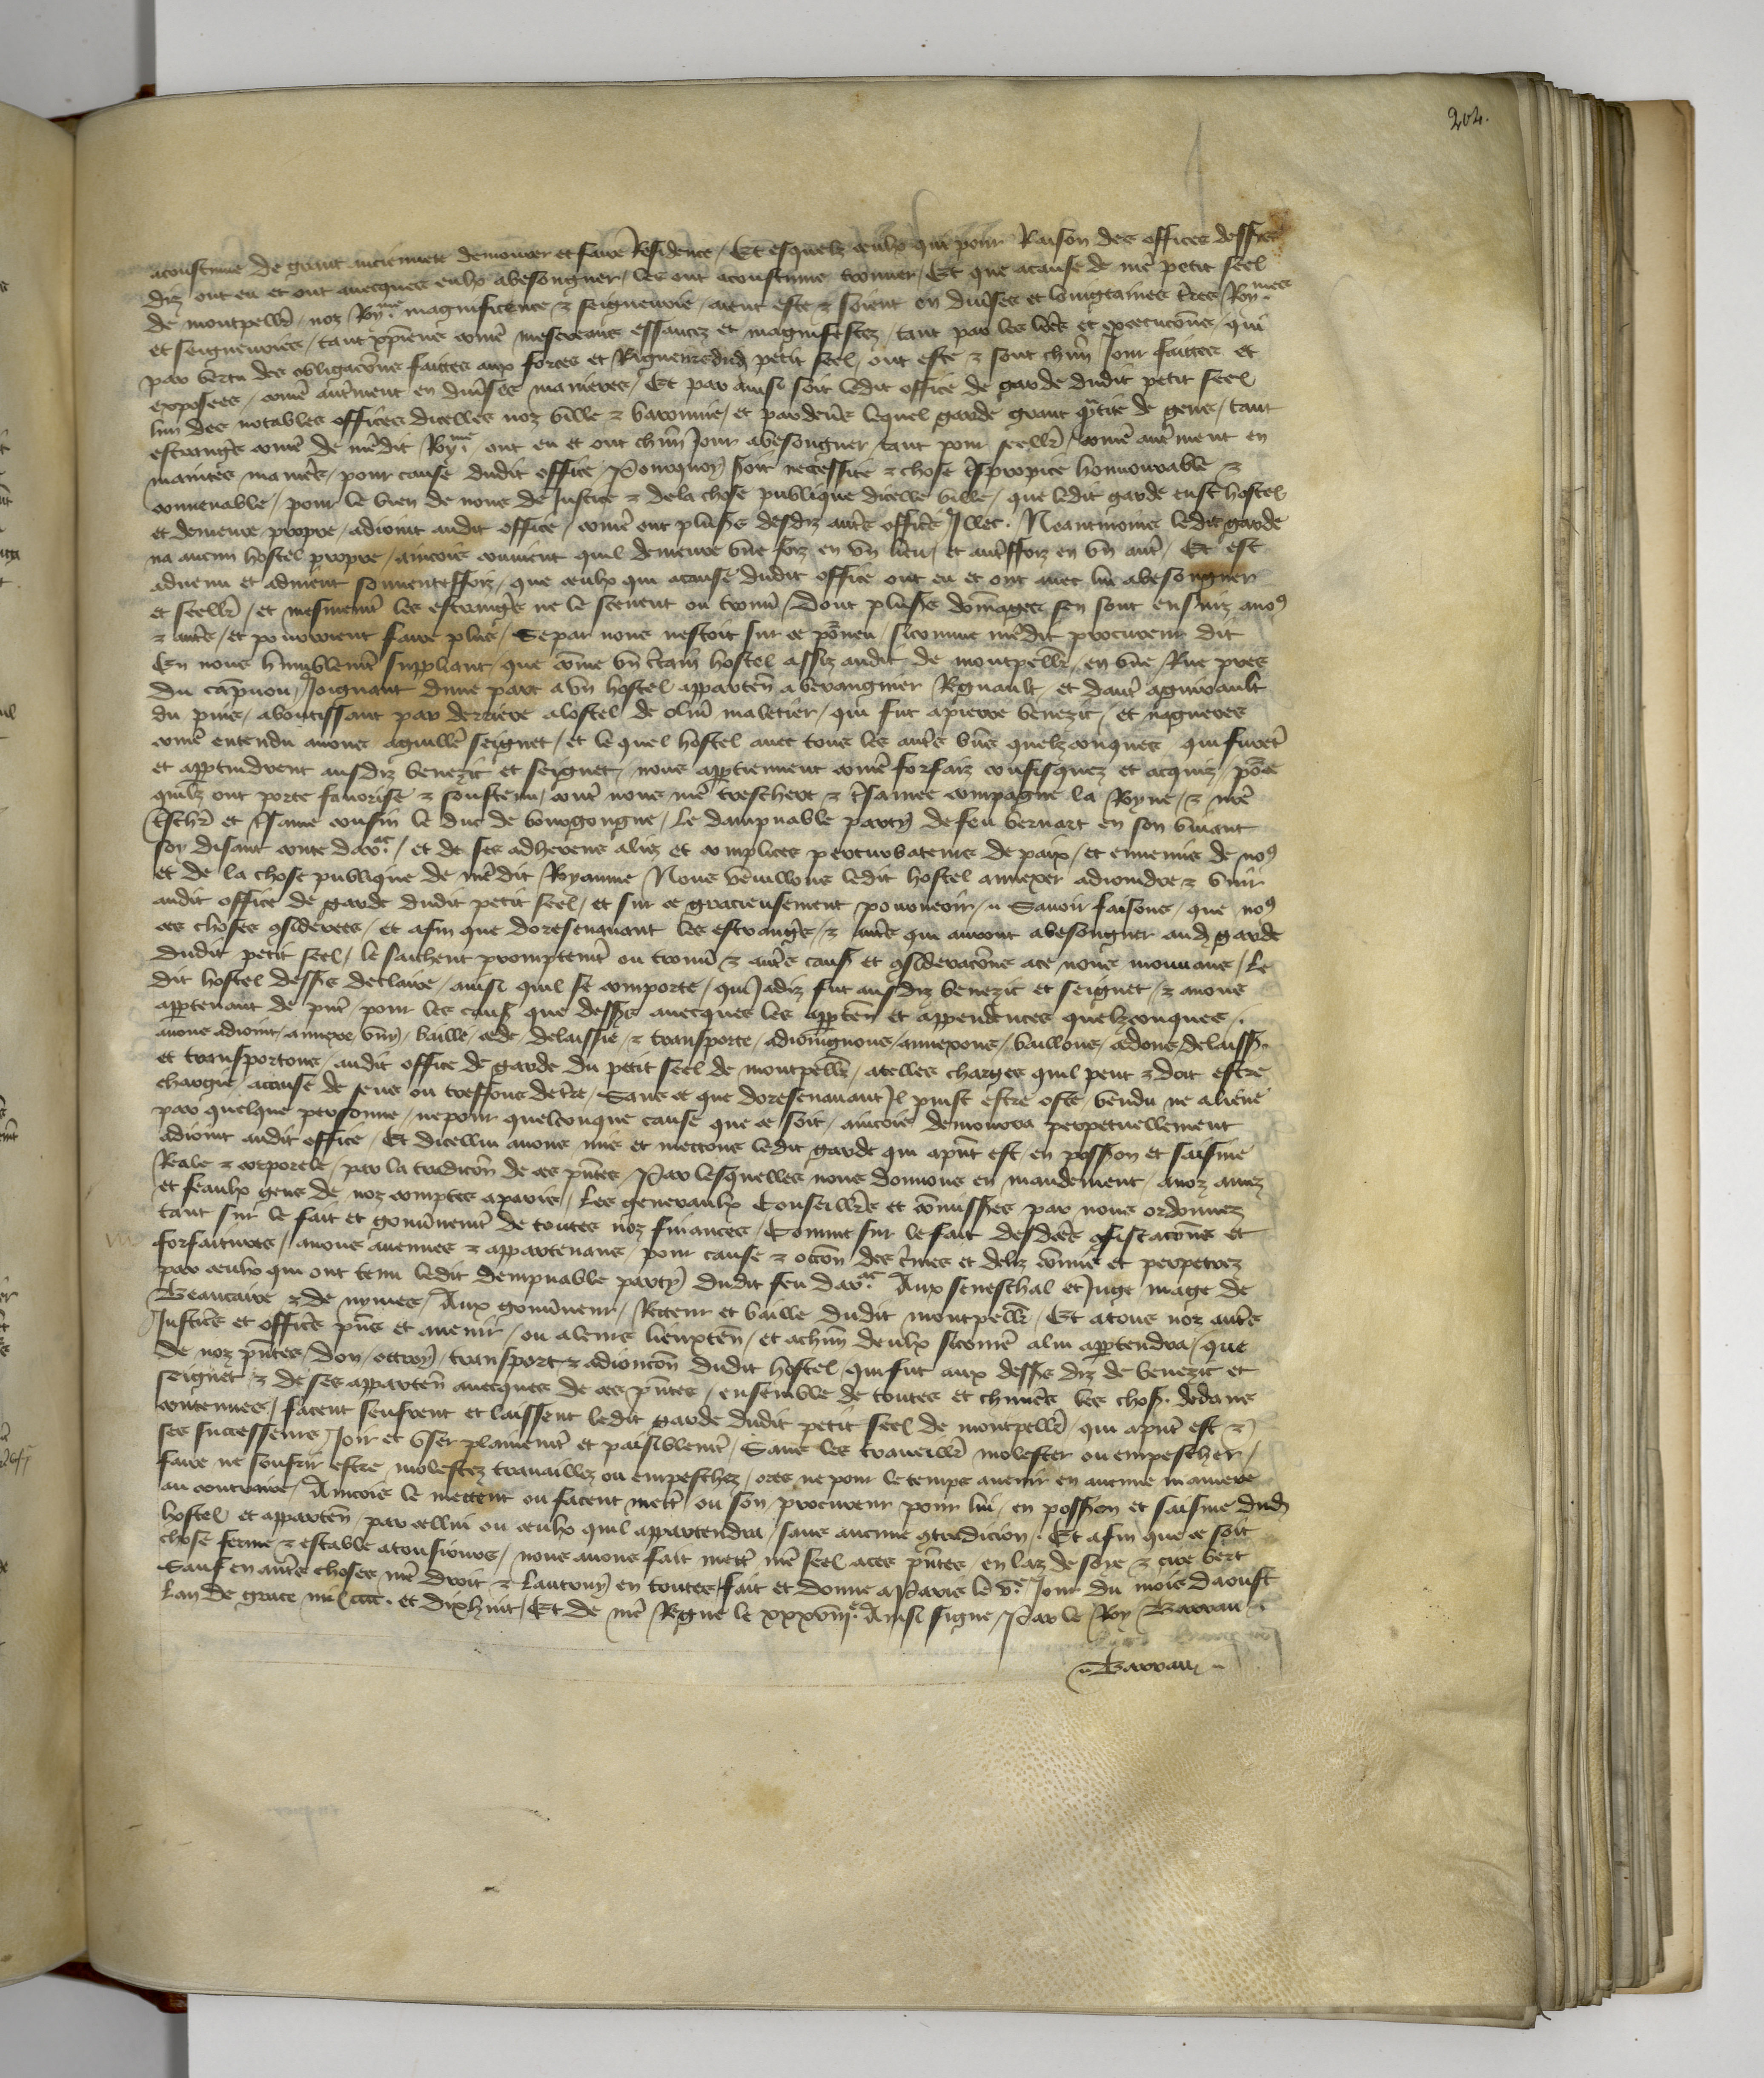 204.
acoustume de grant ancienneté demourer et faire Residence / Et esquelz ceulx qui pour Raison des offices dessus
diz ont eu et ont auecques eulx abesongner / les ont acoustume trouuer / Et que acause de nre petit seel
de montpellr / noz Royme magnificence & seigneurie / aient este & soient en diuses et longtaines tres Roymes
et seigneuries / tant xpiens come mescreans essaucez et magnifestez / tant par les lres et execucons / qui
par vertu des obligacons faittes aux forces et Rigueurs dud petit seel / ont este & sont chun Jour faittes et
exposees / come autment en diuses manieres / Et par ainsi soit ledit office de garde dudit petit seel
lun des notables offices dicelles noz ville & baronnie / et par deuers lequel garde grant qtite de gens / tant
estrangs come de nredit Royme ont eu et ont chun Jour abesongner tant pour seellr / come autment en
maintes manies / pour cause dudit office / Pourquoy soit necessite & chose tspropice honnourable &
conuenable / pour le bien de nous de Justice & dela chose publique dicelle ville / que ledit garde eust hostel
et demeure propre / adioint audit office / come ont plus desdiz autes offics Illec. Neantmoins ledit garde
na aucun hostel propre / aincois conuient quil demeure vne foiz en vn lieu / et autffoiz en vn aut / Et est
aduenu et aduient souuenteffoiz / que ceulx qui acause dudit office ont eu et ont auec lui abesongner
et seellr / et mesment les estrangs ne le sceuent ou trouu / dont plus domages sen sont ensuiz anos
& autes / et pouroient faire plus / Se par nous nestoit sur ce pourueu / sicomme nredit procureur dit
En nous humblemt suppliant / que come vn ctain hostel assiz audit de montpellr / en vne Rue pres
du / Joignant dune part a vn hostel apparten a berangnier Regnault / et daut aguirault
du puis / aboutissant par derriere alostel de oliu maletier / qui fut apierre benezit / et nagueres
come entendu auons aguille seignet / et lequel hostel auec tous les autes bns quelzconques qui furet
et apptindrent ausdiz benezit et seignet / nous apptiennent come forfaiz confisquez et acquiz / pour ce
quilz ont porte fauorise & soustenu / cont nous nre treschere & tsamee compagne la Royne / & nre
tschr et tsame cousin le duc de bourgongne / le dampnable party de feu bernart en son viuant
soy disant conte darac / et de ses adherens aliez et complices perturbateurs de paix / et ennemis de nos
et de la chose publique de nredit Royaume Nous veuillons ledit hostel annexer adioindre & vnir
audit office de garde dudit petit seel / et sur ce gracieusement pourueoir / Sauoir faisons / que nos
ces choses gsiderees / et afin que doresenauant les estrangs / & autes qui auront abesongner aud garde
dudit petit seel / le sachent promptemt ou trouu & autes caus et gsideracons ace nous mouuans / Le
dit hostel dessus declaire / ainsi quil se comporte / qui Jadiz fut ausdiz benezit et seignet / & anous
apptenant de pnt / pour les caus que dessus auecques les appten et appendences quelzconques /.
auons adioint / annexe vny / baille / cede delaissie / & transporte / adioingnons / annexons / baillons / cedons / delaiss.
et transportons / audit office de garde du petit seel de montpellr / atelles charges quil peut & doit estre
chargie / acause de sens ou treffons de tre / Sans ce que doresenauant Il puist estre oste / vendu ne aliene
par quelque personne / nepour quelconque cause que ce soit / aincois demourra perpetuellement
adioint audit office / Et dicellui auons mis et mettons ledit garde qui apnt est / en possion et saisine
Reale & corporele / par la tradicon de ces pntes / Par lesquelles nous donnons en mandement / anoz amez
et feaulx gens de noz comptes aparis / Les generaulx Conseillrs et comissres par nous ordonnez
tant sur le fait et gouunemt de toutes noz finances / Comme sur le fait desdces gfiscacons et
forfaitures / anous auenues & appartenans / pour cause & occon des cmes et deliz comis et perpetrez
par ceulx qui ont tenu ledit dempnable party dudit feu darac Aux seneschal et Juge mage de
Beaucaire & de nymes / Aux gouuneur / Recteur et baille dudit montpellr / Et atous noz autes
Justics et offics pns et auenir / ou aleurs lieuxten / et achun deulx sicome alui apptendra / que
de noz pntes / don / ottroy / transport & adioncon dudit hostel / qui fut aux dessus diz de benezit et
seignet & de ses apparten auecques de ces pntes / ensemble de toutes et chunes les chos. dedans
contenues / facent seuffrent et laissent ledit garde dudit petit seel de montpellr / qui apnt est &
ses successeurs / Joir et vser plainemt et paisiblemt / Sans les traueillr molester ou empescher /
faire ne souffrir estre molestez trauaillez ou empeschez / ores ne pour le temps auenir en aucune maniere
au contraire / Aincois le mettent ou facent mett ou son procureur pour lui / en possion et saisine dud
hostel et apparten / par cellui ou ceulx quil appartendra / sans aucune gtradicion. Et afin que ce soit
chose ferme & estable atousiours / nous auons fait mett nre seel aces pntes / en laz de soye & cire vert
Sauf en autes choses nre droit & lautruy en toutes / fait et donne aparis le ve Jour du mois daoust
Lan de grace mil cccc. et dixhuit / Et de nre Regne le xxxviije Ainsi signe / Par le Roy Barrau
Barrau